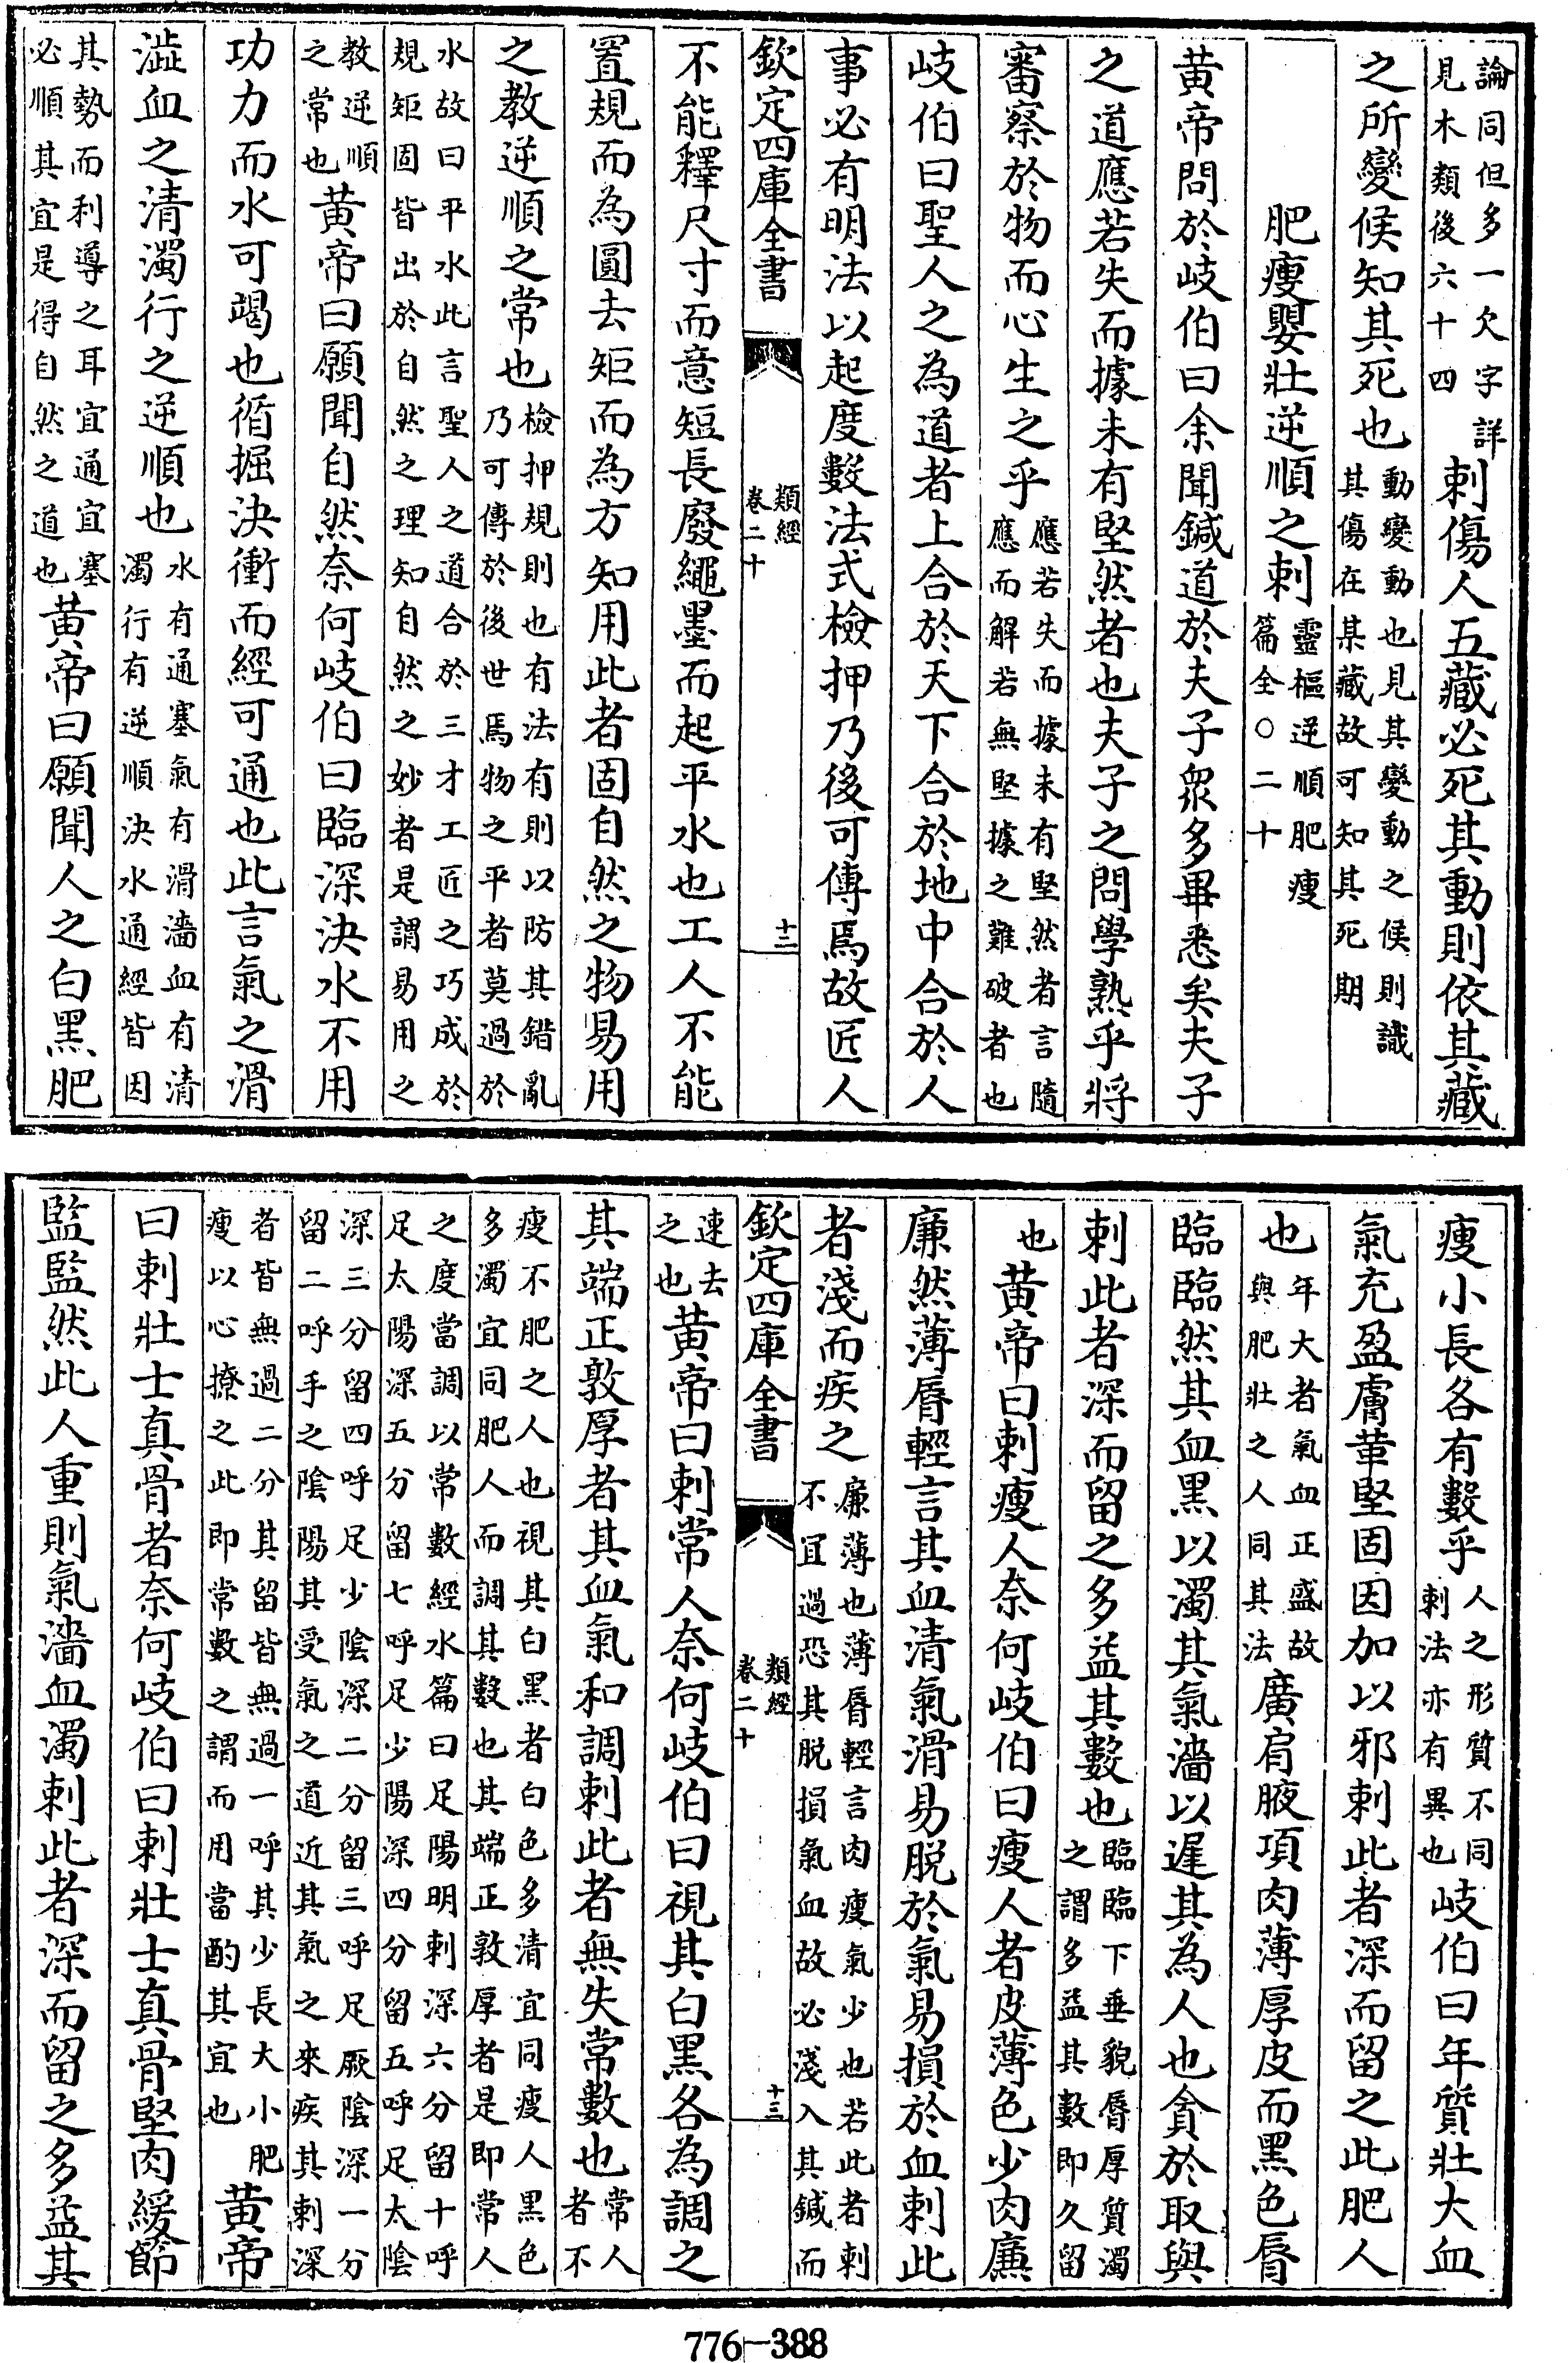 論同但多一欠字詳見木類後六十四刺傷人五藏必死其動則依其藏
之所變候知其死也動變動也見其變動之候則識其傷在某藏故可知其死期
肥瘦嬰壯逆順之刺靈樞逆順肥瘦篇全○二十
黄帝問於岐伯曰余聞鍼道於夫子衆多畢悉矣夫子
之道應若失而據未有堅然者也夫子之問學熟乎將
審察於物而心生之乎應若失而據未有堅然者言隨應而解若無堅據之難破者也
岐伯曰聖人之為道者上合於天下合於地中合於人
事必有明法以起度數法式檢押乃後可傳焉故匠人
欽定四庫全書 類經卷二十 十三
不能釋尺寸而意短長廢繩墨而起平水也工人不能
置規而為圓去矩而為方知用此者固自然之物易用
之教逆順之常也檢押規則也有法有則以防其錯亂乃可傳於後世焉物之平者莫過於
水故曰平水此言聖人之道合於三才工匠之巧成於規矩固皆出於自然之理知自然之妙者是謂易用之
教逆順之常也黄帝曰願聞自然奈何岐伯曰臨深決水不用
功力而水可竭也循掘決衝而經可通也此言氣之滑
澁血之清濁行之逆順也水有通塞氣有滑濇血有清濁行有逆順決水通經皆因
其勢而利導之耳宜通宜塞必順其宜是得自然之道也黄帝曰願聞人之白黑肥
瘦小長各有數乎人之形質不同刺法亦有異也岐伯曰年質壯大血
氣充盈膚革堅固因加以邪刺此者深而留之此肥人
也年大者氣血正盛故與肥壯之人同其法廣肩腋項肉薄厚皮而黑色脣
臨臨然其血黑以濁其氣濇以遲其為人也貪於取與
刺此者深而留之多益其數也臨臨下垂貌脣厚質濁之謂多益其數即久留
也黄帝曰刺瘦人奈何岐伯曰瘦人者皮薄色少肉廉
廉然薄脣輕言其血清氣滑易脱於氣易損於血刺此
者淺而疾之廉薄也薄脣輕言肉瘦氣少也若此者刺不冝過恐其脱損氣血故必淺入其鍼而
欽定四庫全書 類經卷二十 十三
速去之也黄帝曰刺常人奈何岐伯曰視其白黑各為調之
其端正敦厚者其血氣和調刺此者無失常數也常人者不
瘦不肥之人也視其白黑者白色多清宜同瘦人黑色多濁宜同肥人而調其數也其端正敦厚者是即常人
之度當調以常數經水篇曰足陽明刺深六分留十呼足太陽深五分留七呼足少陽深四分留五呼足太陰
深三分留四呼足少陰深二分留三呼足厥陰深一分留二呼手之陰陽其受氣之道近其氣之來疾其刺深
者皆無過二分其留皆無過一呼其少長大小肥瘦以心撩之此即常數之謂而用當酌其宜也黄帝
曰刺壯士真骨者奈何岐伯曰刺壯士真骨堅肉緩節
監監然此人重則氣濇血濁刺此者深而留之多益其
776-388